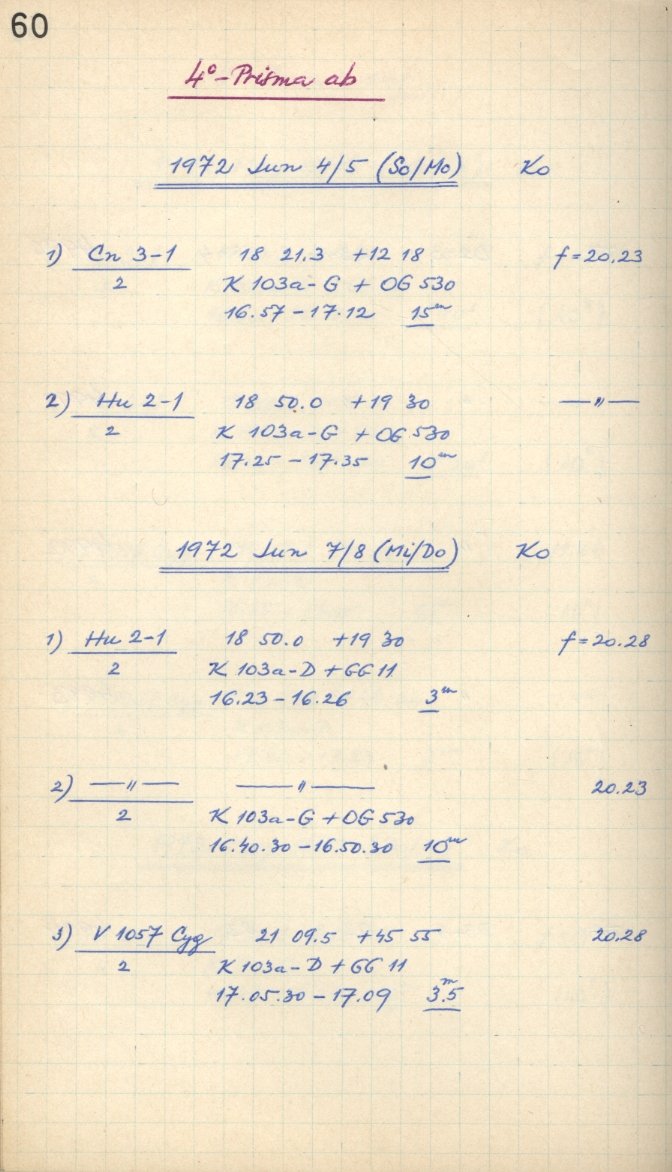 60
4°-Prisma ab
1972 Jun 4/5 (So/Mo) Ko
1) Cn 3-1 18 21.3 +12 18 f = 20.23
2 K 103a-G + OG 530
16.57 – 17.12 15m
2) Hu 2-1 18 50.0 +19 30 —〃—
2 K 103a-G + OG 530
17.25 – 17.35 10m
1972 Jun 7/8 (Mi/Do) Ko
1) Hu 2-1 18 50.0 +19 30 f = 20.28
2 K 103a-D + GG 11
16.23 – 16.26 3m
2) —〃— —〃— 20.23
2 K 103a-G + OG 530
16.40.30 – 16.50.30 10m
3) V 1057 Cyg 21 09.5 +45 55 20.28
2 K 103a-D + GG 11
17.05.30 – 17.09 3m.5